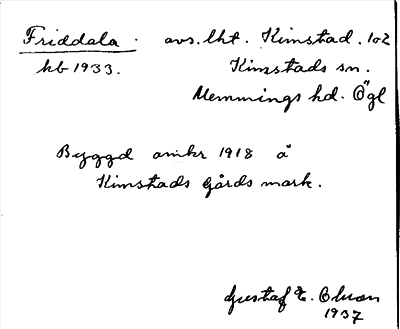 Friddala. avs. lht. Kimstad. 1o2
hb 1933. Kimstads sn.
Memmings hd. Ögl
Byggd omkr 1918 å
Kimstads gårds mark.
Gustaf E. Olson
1937